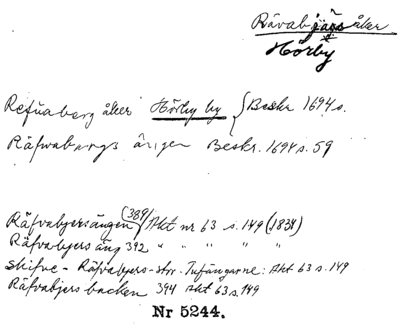 Rävabjärs åker
Hörby
Refuaberg åker Hörby by } Beskr 1694 s.
Räfvabergs ängen Beskr. 1694 s. 59
Räfvabjersängen (389) Akt nr 63 s. 149 (1834)
Räfvabjers äng 392 " " " " "
skifve - Räfvabjers-str. Tufängarne: Akt 63 s. 149
Räfvabjers backen 394 Akt 63 s. 149
Nr 5244.